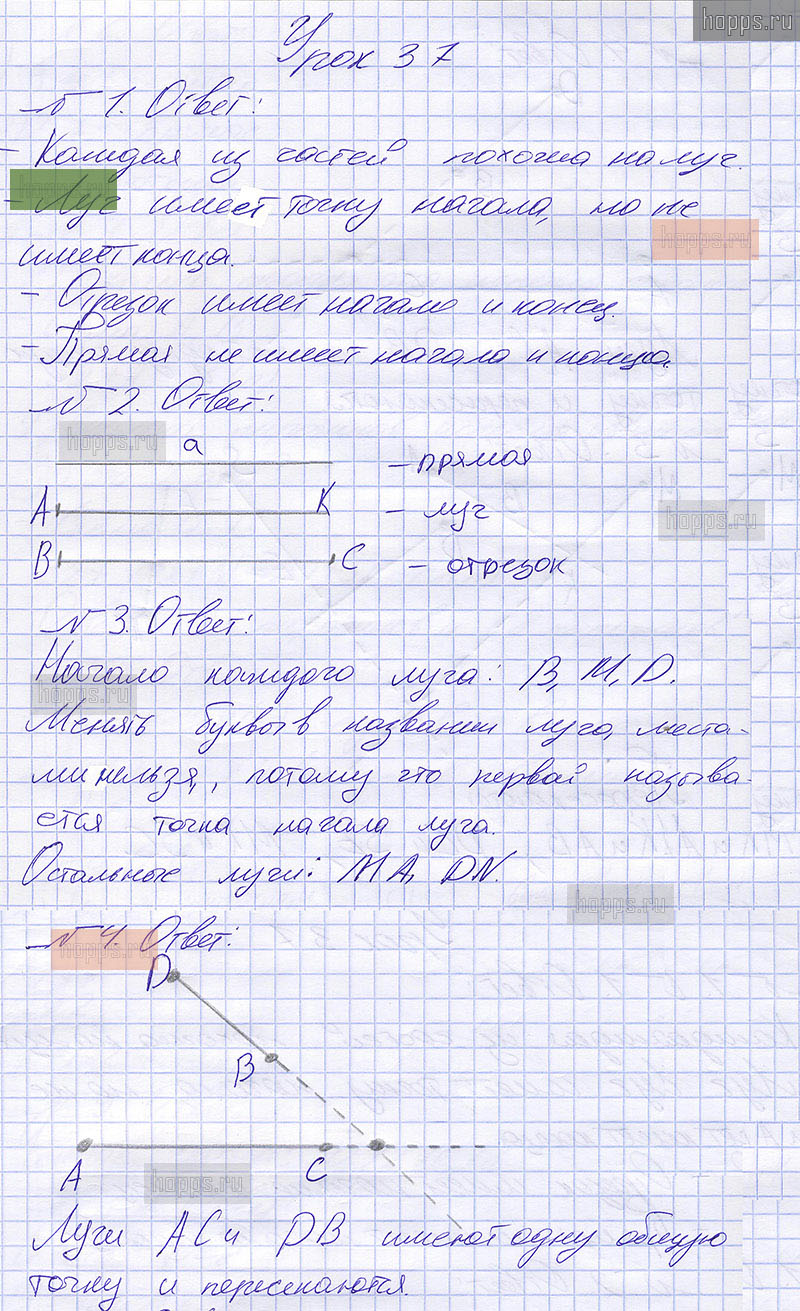 hopps.ru
Урок 37
№ 1. Ответ:
- Каждая из частей похожа на луч.
- Луч имеет точку начала, но не
hopps.ru
имеет конца.
- Отрезок имеет начало и конец.
- Прямая не имеет начала и конца.
№ 2. Ответ:
hopps.ru
a - прямая
A K - луч
hopps.ru
B C - отрезок
№ 3. Ответ:
Начало каждого луча: B, M, D.
hopps.ru
Менять буквы в названии луча, места-
ми нельзя, потому что первой называ-
ется точка начала луча.
Остальные лучи: MA, DN.
hopps.ru
№ 4. Ответ:
hopps.ru
D
B
A C
hopps.ru
Лучи AC и DB имеют одну общую
точку и пересекаются.